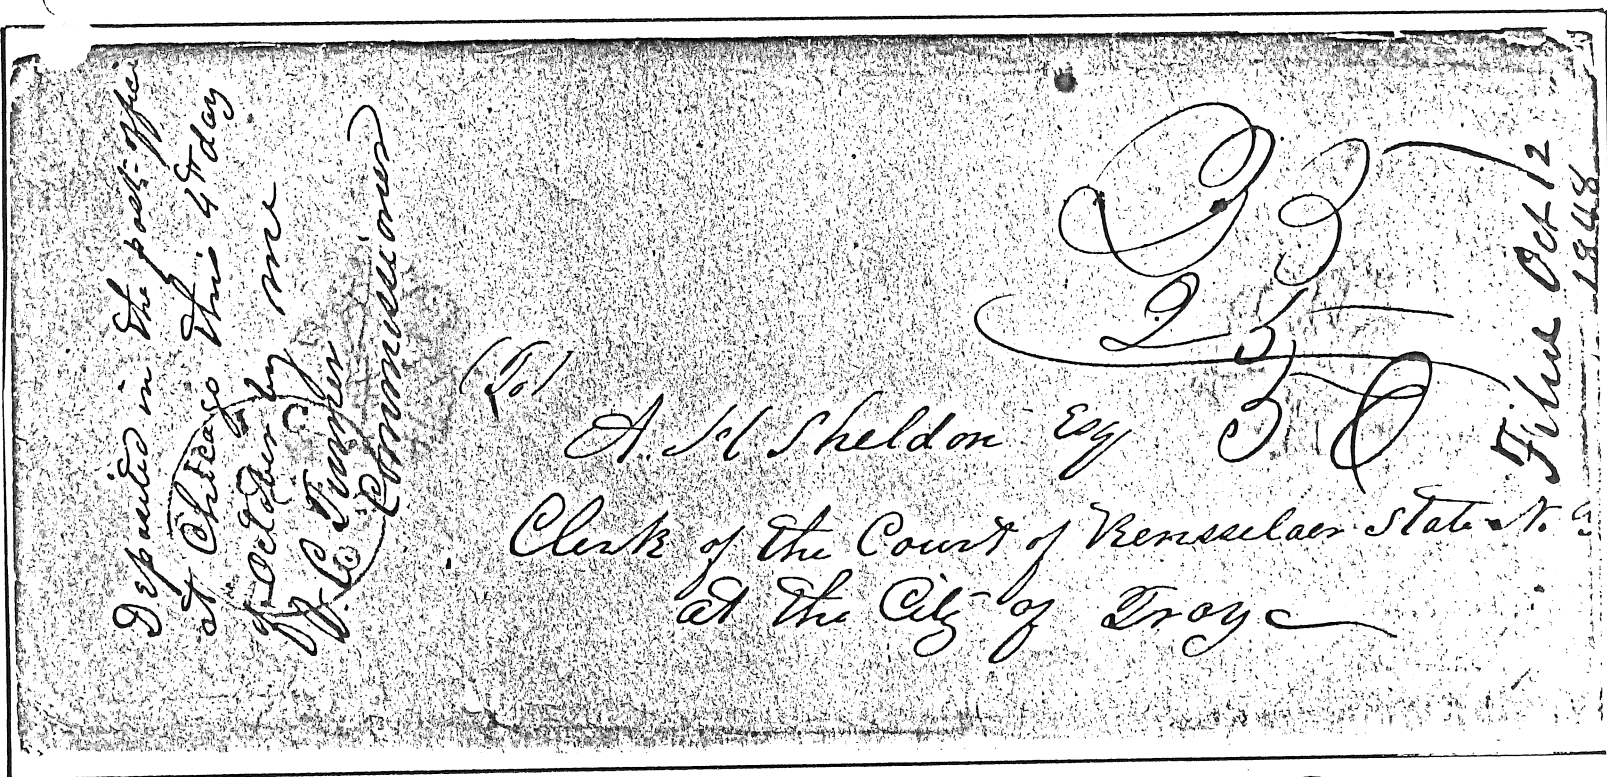 Deposited in the post-office
at Chicago this 4th day
of October by me
Commissioner
(To)
A. H Sheldon Esq
Clerk of the Court of Rensselaer State N.
at the City of Troy
Filed Oct 12
1848